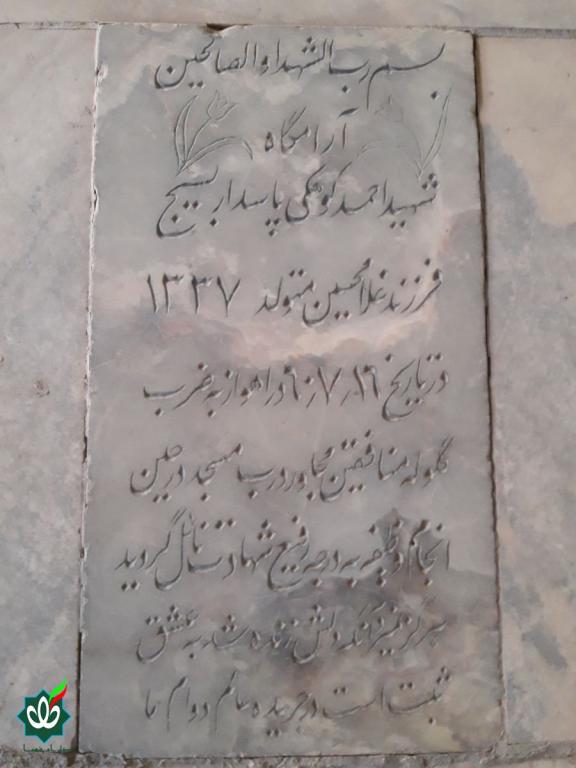 بسم رب الشهدا و الصالحین
آرامگاه
شهید احمد کوهکی پاسدار بسیج
فرزند غلامحسین متولد ۱۳۳۷
در تاریخ ۱۹٫۷٫۶۰ در اهواز به ضرب
گلوله منافقین مجاور درب مسجد در حین
انجام وظیفه به درجه رفیع شهادت نائل گردید
هرگز نمیرد آنکه دلش زنده شد به عشق
ثبت است در جریده عالم دوام ما